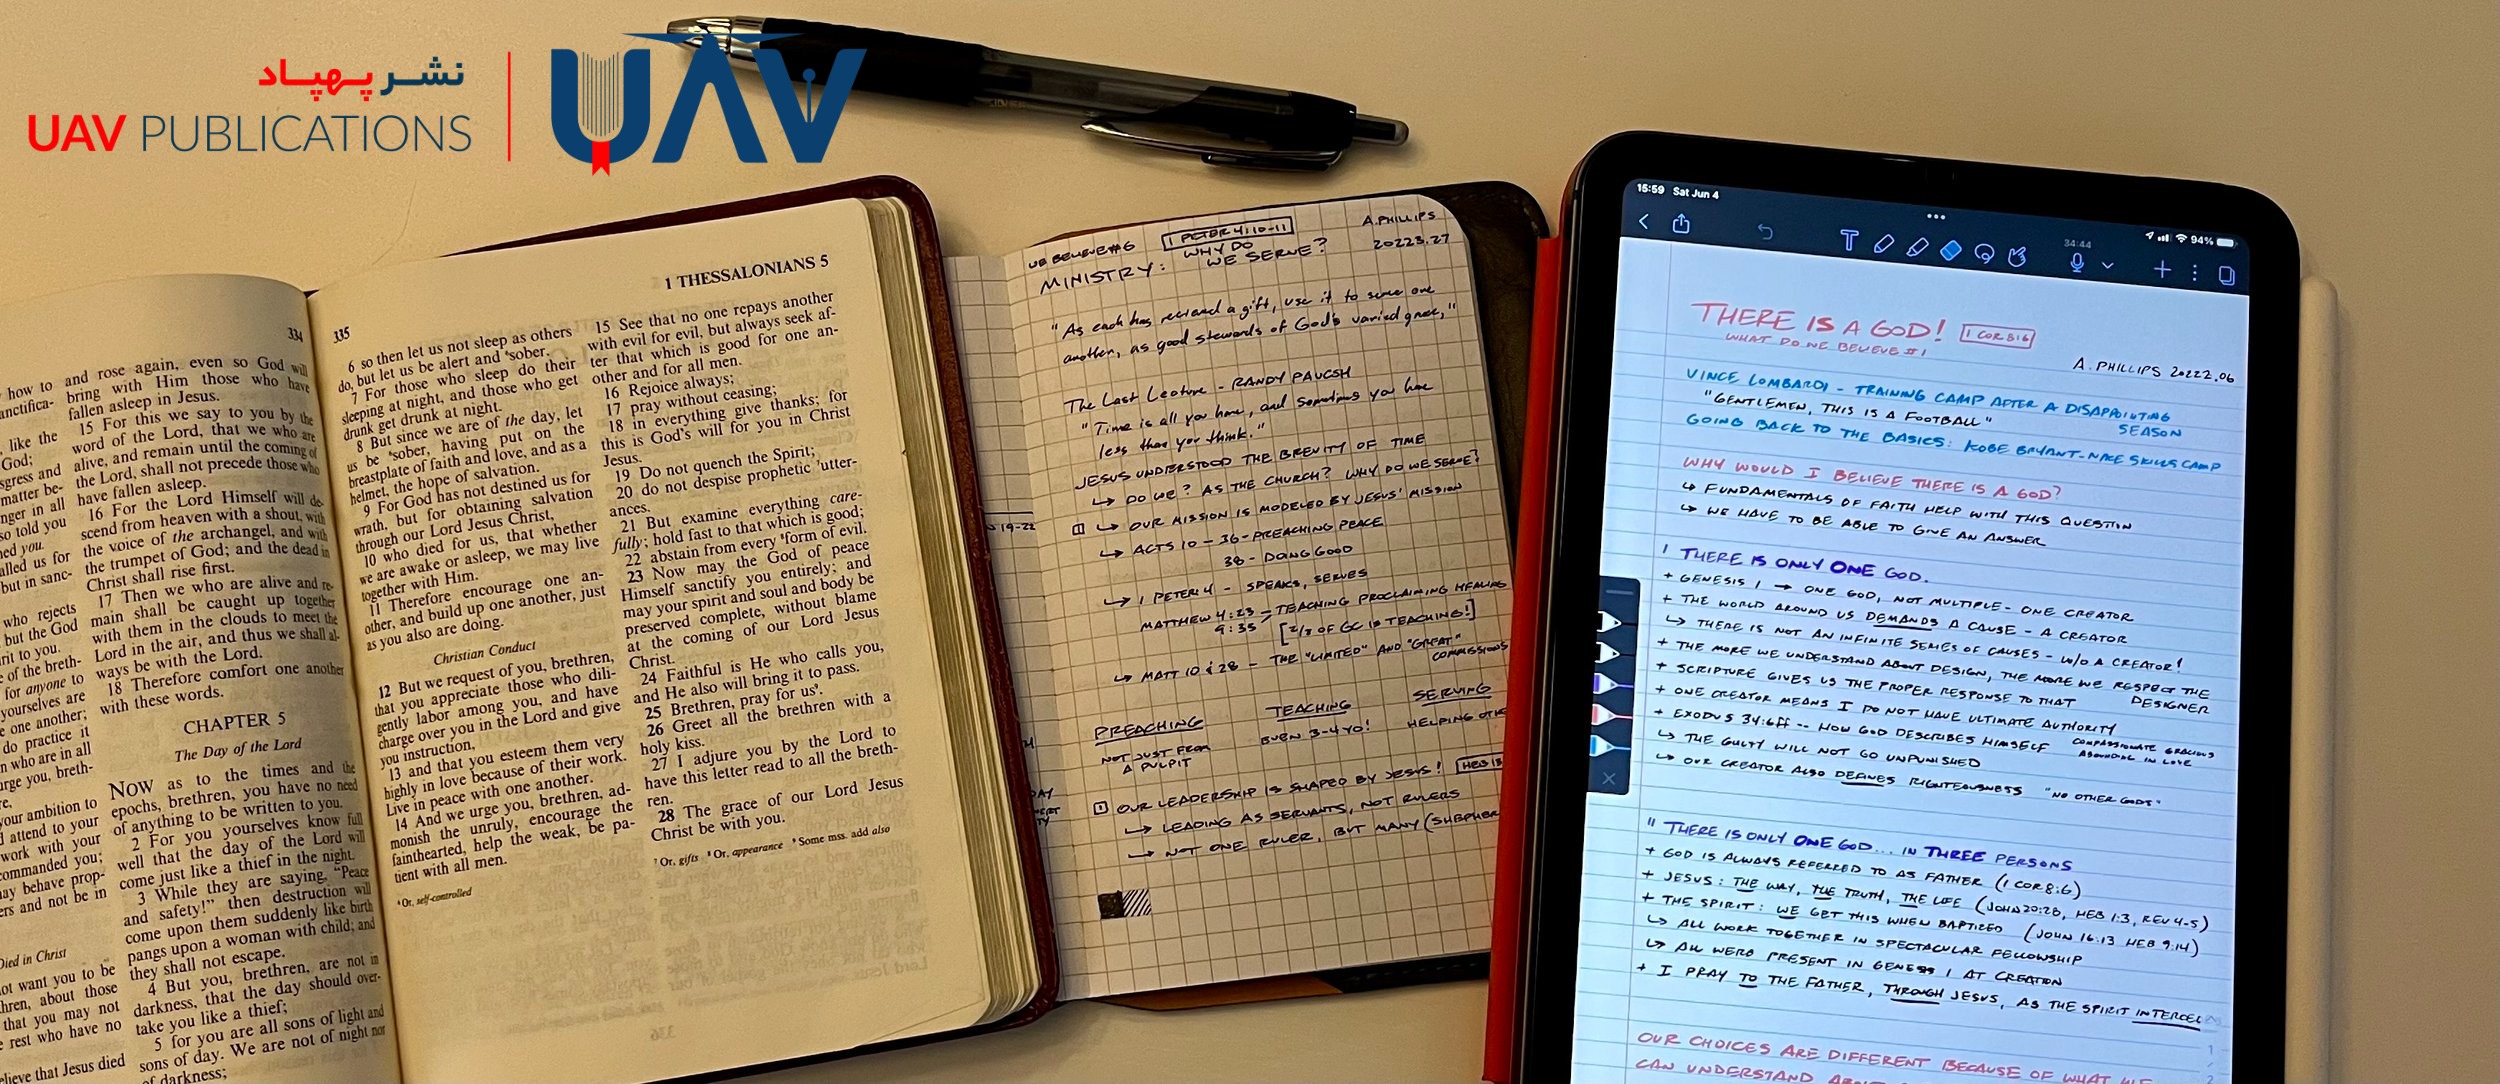 نشر پهپاد
UAV PUBLICATIONS
UAV
334
how to
anctifica-
like the
God;
sgress and
matter be-
nger in all
so told you
ned you.
alled us for
but in sanc-
who rejects
but the God
rit to you.
of the breth-
for anyone to
yourselves are
e one another;
do practice it
n who are in all
urge you, breth-
re,
our ambition to
d attend to your
work with your
ommanded you;
may behave prop-
ers and not be in
Died in Christ
not want you to be
thren, about those
that you may not
e rest who have no
elieve that Jesus died
and rose again, even so God will
bring with Him those who have
fallen asleep in Jesus.
15 For this we say to you by the
word of the Lord, that we who are
alive, and remain until the coming of
the Lord, shall not precede those who
have fallen asleep.
16 For the Lord Himself will de-
scend from heaven with a shout, with
the voice of the archangel, and with
the trumpet of God; and the dead in
Christ shall rise first.
17 Then we who are alive and re-
main shall be caught up together
with them in the clouds to meet the
Lord in the air, and thus we shall al-
ways be with the Lord.
18 Therefore comfort one another
with these words.
CHAPTER 5
The Day of the Lord
NOW as to the times and the
epochs, brethren, you have no need
of anything to be written to you.
2 For you yourselves know full
well that the day of the Lord will
come just like a thief in the night.
3 While they are saying, "Peace
and safety!" then destruction will
come upon them suddenly like birth
pangs upon a woman with child; and
they shall not escape.
4 But you, brethren, are not in
darkness, that the day should over-
take you like a thief;
5 for you are all sons of light and
sons of day. We are not of night nor
of darkness;
335
1 THESSALONIANS 5
6 so then let us not sleep as others
do, but let us be alert and ⁴sober.
7 For those who sleep do their
sleeping at night, and those who get
drunk get drunk at night.
8 But since we are of the day, let
us be ⁴sober, having put on the
breastplate of faith and love, and as a
helmet, the hope of salvation.
9 For God has not destined us for
wrath, but for obtaining salvation
through our Lord Jesus Christ,
10 who died for us, that whether
we are awake or asleep, we may live
together with Him.
11 Therefore encourage one an-
other, and build up one another, just
as you also are doing.
Christian Conduct
12 But we request of you, brethren,
that you appreciate those who dili-
gently labor among you, and have
charge over you in the Lord and give
you instruction,
13 and that you esteem them very
highly in love because of their work.
Live in peace with one another.
14 And we urge you, brethren, ad-
monish the unruly, encourage the
fainthearted, help the weak, be pa-
tient with all men.
⁴Or, self-controlled
15 See that no one repays another
with evil for evil, but always seek af-
ter that which is good for one an-
other and for all men.
16 Rejoice always;
17 pray without ceasing;
18 in everything give thanks; for
this is God's will for you in Christ
Jesus.
19 Do not quench the Spirit;
20 do not despise prophetic ⁷utter-
ances.
21 But examine everything care-
fully; hold fast to that which is good;
22 abstain from every ⁸form of evil.
23 Now may the God of peace
Himself sanctify you entirely; and
may your spirit and soul and body be
preserved complete, without blame
at the coming of our Lord Jesus
Christ.
24 Faithful is He who calls you,
and He also will bring it to pass.
25 Brethren, pray for us⁹.
26 Greet all the brethren with a
holy kiss.
27 I adjure you by the Lord to
have this letter read to all the breth-
ren.
28 The grace of our Lord Jesus
Christ be with you.
⁷ Or, gifts ⁸ Or, appearance ⁹ Some mss. add also
WE BELIEVE #6 1 PETER 4:10-11 A. PHILLIPS
MINISTRY: WHY DO WE SERVE? 20223.27
"As each has received a gift, use it to serve one
another, as good stewards of God's varied grace,"
The Last Lecture - RANDY PAUCSH
"Time is all you have, and sometimes you have
less than you think."
JESUS UNDERSTOOD THE BREVITY OF TIME
↳ DO WE? AS THE CHURCH? WHY DO WE SERVE?
↳ OUR MISSION IS MODELED BY JESUS' MISSION
↳ ACTS 10 - 36 - PREACHING PEACE
38 - DOING GOOD
↳ 1 PETER 4 - SPEAKS, SERVES
MATTHEW 4:23 - TEACHING PROCLAIMING HEALING
9:35 [2/3 OF GC IS TEACHING!]
↳ MATT 10 & 28 - THE "LIMITED" AND "GREAT"
COMMISSIONS
PREACHING TEACHING SERVING
NOT JUST FROM A PULPIT EVEN 3-4 YO! HELPING OTHE
OUR LEADERSHIP IS SHAPED BY JESUS! HEB 13
↳ LEADING AS SERVANTS, NOT RULERS
↳ NOT ONE RULER, BUT MANY (SHEPHER
19-22
15:59 Sat Jun 4
94%
34:44
THERE IS A GOD! 1 COR 8:6
WHAT DO WE BELIEVE #1
A. PHILLIPS 20222.06
VINCE LOMBARDI - TRAINING CAMP AFTER A DISAPPOINTING
SEASON
"GENTLEMEN, THIS IS A FOOTBALL"
GOING BACK TO THE BASICS: KOBE BRYANT - NIKE SKILLS CAMP
WHY WOULD I BELIEVE THERE IS A GOD?
↳ FUNDAMENTALS OF FAITH HELP WITH THIS QUESTION
↳ WE HAVE TO BE ABLE TO GIVE AN ANSWER
I THERE IS ONLY ONE GOD.
+ GENESIS 1 → ONE GOD, NOT MULTIPLE - ONE CREATOR
+ THE WORLD AROUND US DEMANDS A CAUSE - A CREATOR
↳ THERE IS NOT AN INFINITE SERIES OF CAUSES - W/O A CREATOR!
+ THE MORE WE UNDERSTAND ABOUT DESIGN, THE MORE WE RESPECT THE
DESIGNER
+ SCRIPTURE GIVES US THE PROPER RESPONSE TO THAT
+ ONE CREATOR MEANS I DO NOT HAVE ULTIMATE AUTHORITY
+ EXODUS 34:6ff -- HOW GOD DESCRIBES HIMSELF COMPASSIONATE GRACIOUS
ABOUNDING IN LOVE
↳ THE GUILTY WILL NOT GO UNPUNISHED
↳ OUR CREATOR ALSO DEFINES RIGHTEOUSNESS "NO OTHER GODS"
II THERE IS ONLY ONE GOD... IN THREE PERSONS
+ GOD IS ALWAYS REFERRED TO AS FATHER (1 COR 8:6)
+ JESUS: THE WAY, THE TRUTH, THE LIFE (JOHN 20:28, HEB 1:3, REV 4-5)
+ THE SPIRIT: WE GET THIS WHEN BAPTIZED (JOHN 16:13 HEB 9:14)
↳ ALL WORK TOGETHER IN SPECTACULAR FELLOWSHIP
↳ ALL WERE PRESENT IN GENESIS 1 AT CREATION
+ I PRAY TO THE FATHER, THROUGH JESUS, AS THE SPIRIT INTERCE
OUR CHOICES ARE DIFFERENT BECAUSE OF WHAT WE
CAN UNDERSTAND